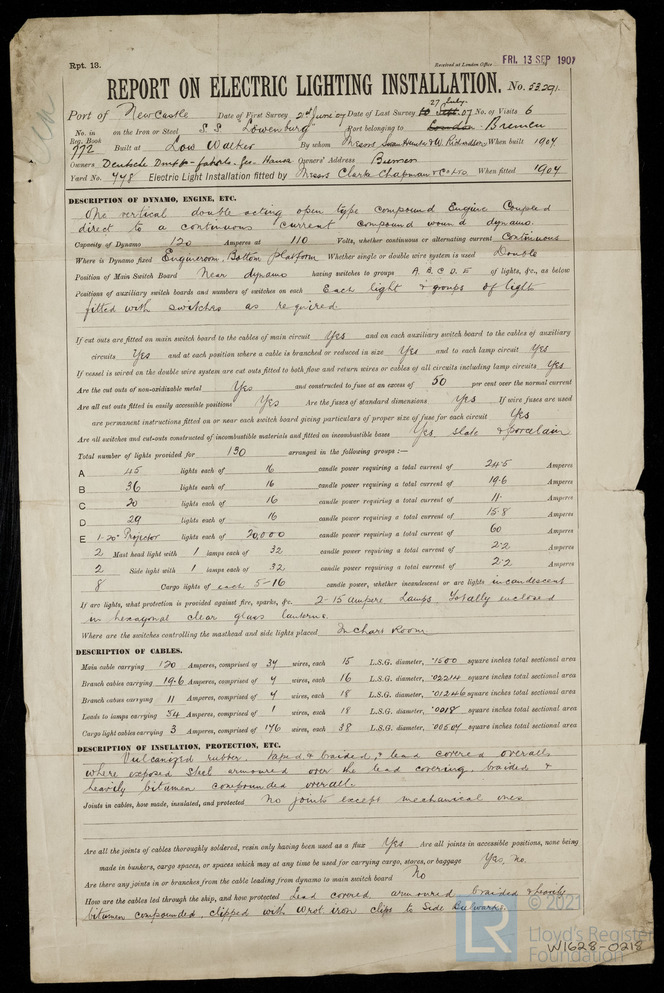 Rpt. 13.
Received at London Office FRI. 13 SEP 1907
REPORT ON ELECTRIC LIGHTING INSTALLATION. No. 53291.
Port of Newcastle Date of First Survey 2d June 07 Date of Last Survey 27 July 07 No. of Visits 6
No. in Reg. Book 772 on the Iron or Steel S.S. Lowenburg Port belonging to London Bremen
Built at Low Walker By whom Messrs Swan Hunter & W. Richardson When built 1907
Owners Deutsche Dmpf- Hansa Owners' Address Bremen
Yard No. 778 Electric Light Installation fitted by Messrs Clarke Chapman & Co Ltd When fitted 1907
DESCRIPTION OF DYNAMO, ENGINE, ETC.
One vertical double acting open type compound Engine Coupled
direct to a continuous current compound wound dynamo.
Capacity of Dynamo 120 Amperes at 110 Volts, whether continuous or alternating current Continuous
Where is Dynamo fixed Engineroom. Bottom platform Whether single or double wire system is used Double
Position of Main Switch Board Near dynamo having switches to groups A. B. C. D. E of lights, &c., as below
Positions of auxiliary switch boards and numbers of switches on each Each light & groups of lights
fitted with switches as required.
If cut outs are fitted on main switch board to the cables of main circuit Yes and on each auxiliary switch board to the cables of auxiliary
circuits Yes and at each position where a cable is branched or reduced in size Yes and to each lamp circuit Yes
If vessel is wired on the double wire system are cut outs fitted to both flow and return wires or cables of all circuits including lamp circuits Yes
Are the cut outs of non-oxidizable metal Yes and constructed to fuse at an excess of 50 per cent over the normal current
Are all cut outs fitted in easily accessible positions Yes Are the fuses of standard dimensions Yes If wire fuses are used
are permanent instructions fitted on or near each switch board giving particulars of proper size of fuse for each circuit Yes
Are all switches and cut-outs constructed of incombustible materials and fitted on incombustible bases Yes, slate & porcelain
Total number of lights provided for 130 arranged in the following groups :—
A 45 lights each of 16 candle power requiring a total current of 24.5 Amperes
B 36 lights each of 16 candle power requiring a total current of 19.6 Amperes
C 20 lights each of 16 candle power requiring a total current of 11. Amperes
D 29 lights each of 16 candle power requiring a total current of 15.8 Amperes
E 1-20" Projector lights each of 20,000 candle power requiring a total current of 60 Amperes
2 Mast head light with 1 lamps each of 32 candle power requiring a total current of 2.2 Amperes
2 Side light with 1 lamps each of 32 candle power requiring a total current of 2.2 Amperes
8 Cargo lights of each 5-16 candle power, whether incandescent or arc lights incandescent
If arc lights, what protection is provided against fire, sparks, &c. 2-15 ampere Lamps totally enclosed
in hexagonal clear glass lanterns.
Where are the switches controlling the masthead and side lights placed In Chart Room
DESCRIPTION OF CABLES.
Main cable carrying 120 Amperes, comprised of 37 wires, each 15 L.S.G. diameter, .1500 square inches total sectional area
Branch cables carrying 19.6 Amperes, comprised of 7 wires, each 16 L.S.G. diameter, .02214 square inches total sectional area
Branch cables carrying 11 Amperes, comprised of 7 wires, each 18 L.S.G. diameter, .01246 square inches total sectional area
Leads to lamps carrying .54 Amperes, comprised of 1 wires, each 18 L.S.G. diameter, .0018 square inches total sectional area
Cargo light cables carrying 3 Amperes, comprised of 176 wires, each 38 L.S.G. diameter, .00504 square inches total sectional area
DESCRIPTION OF INSULATION, PROTECTION, ETC.
Vulcanized rubber, taped & braided, & lead covered overall,
where exposed steel armoured over the lead covering, braided &
heavily bitumen compounded overall.
Joints in cables, how made, insulated, and protected No joints except mechanical ones
Are all the joints of cables thoroughly soldered, resin only having been used as a flux Yes Are all joints in accessible positions, none being
made in bunkers, cargo spaces, or spaces which may at any time be used for carrying cargo, stores, or baggage Yes, no.
Are there any joints in or branches from the cable leading from dynamo to main switch board No
How are the cables led through the ship, and how protected Lead covered armoured braided & heavily
bitumen compounded, clipped with wrot. iron clips to Side Bulwarks.
LR © 2021
Lloyd's Register
Foundation
W1628-0218